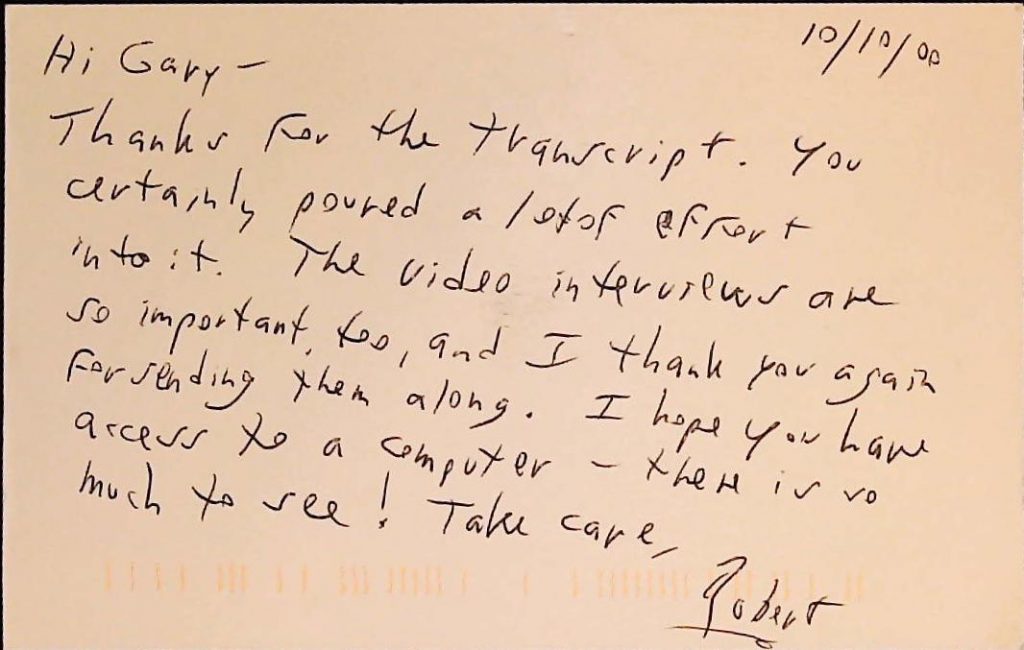 10/10/00
Hi Gary —
Thanks for the transcript. You
certainly poured a lot of effort
into it. The video interviews are
so important, too, and I thank you again
for sending them along. I hope you have
access to a computer – there is so
much to see! Take care,
Robert